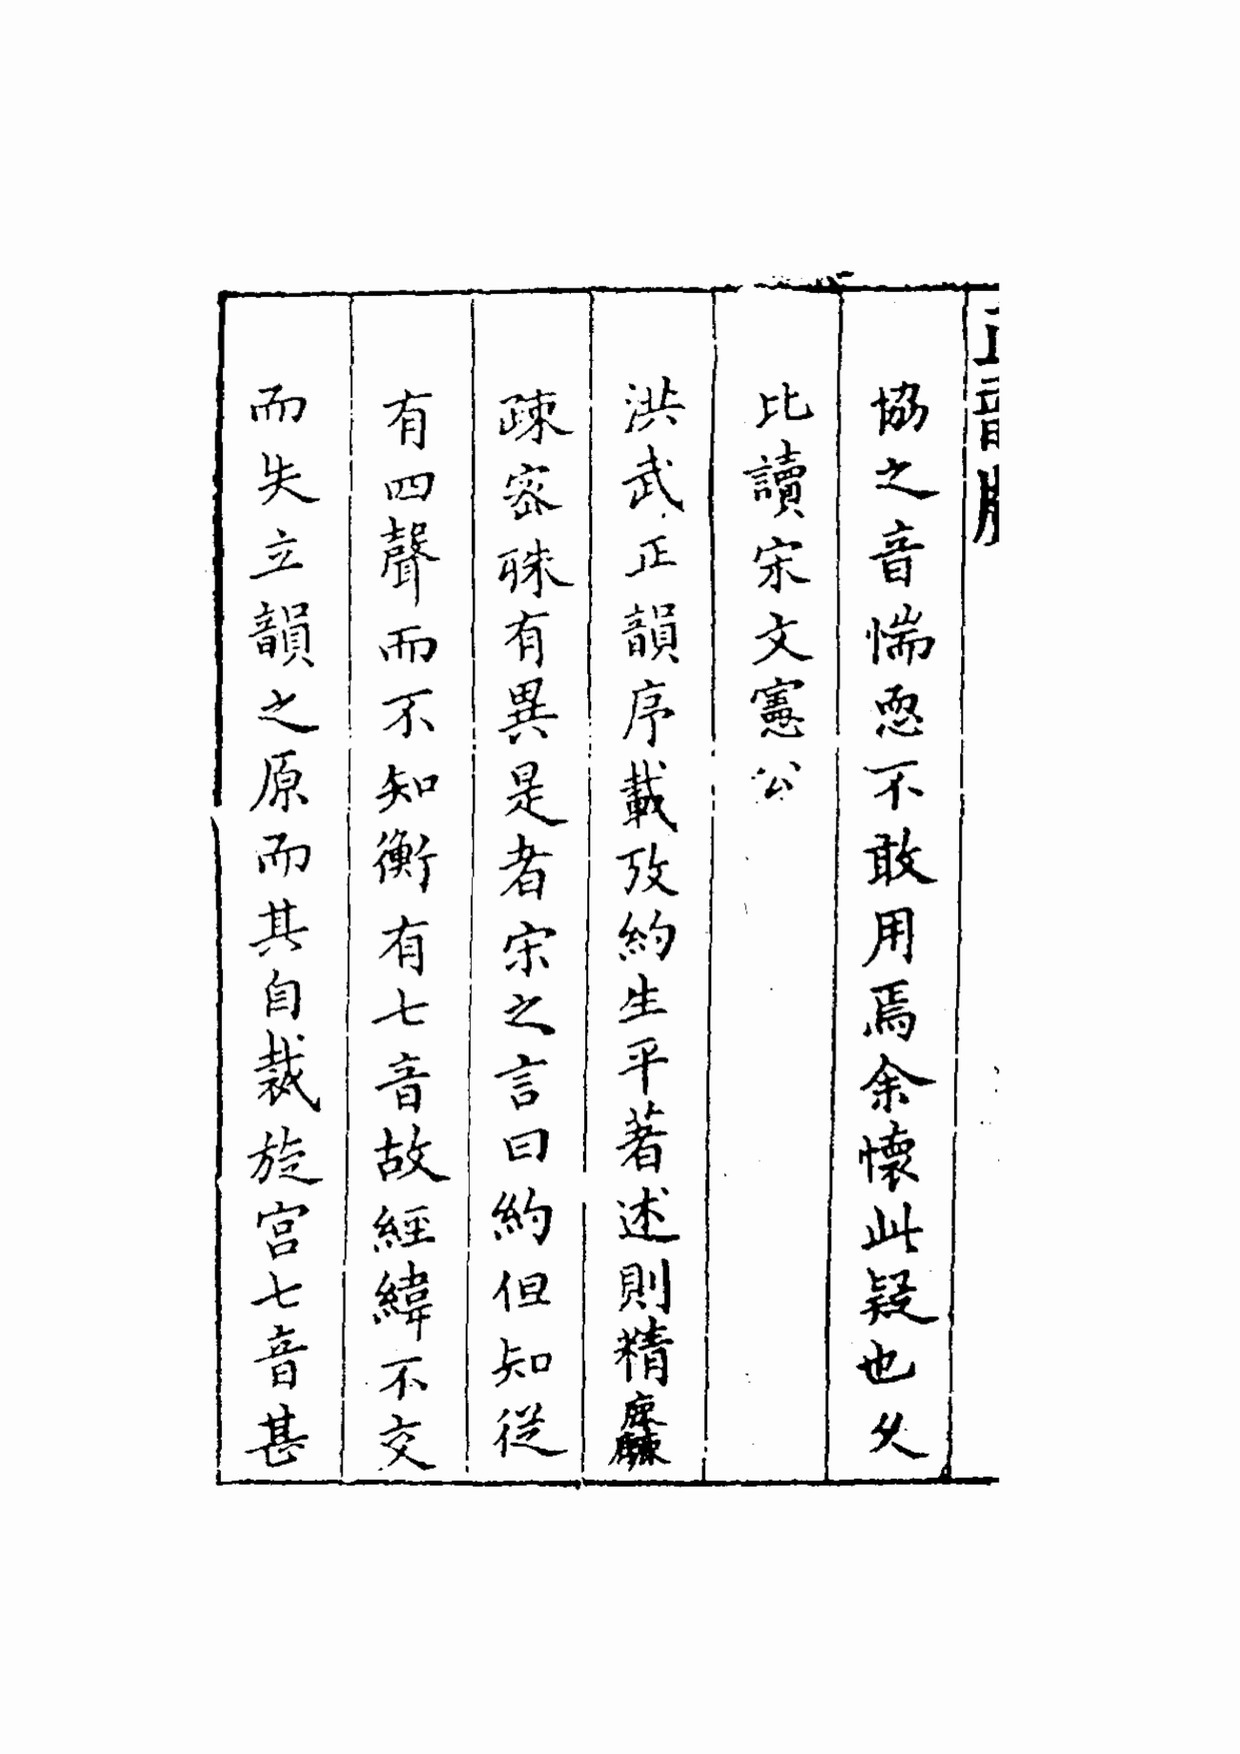 協之音惴惴不敢用焉余懷此疑也久
比讀宋文憲公
洪武正韻序載攷約生平著述則精麤
疎宻殊有異是者宋之言曰約但知從
有四聲而不知衡有七音故經緯不交
而失立韻之原而其自裁旋宫七音甚